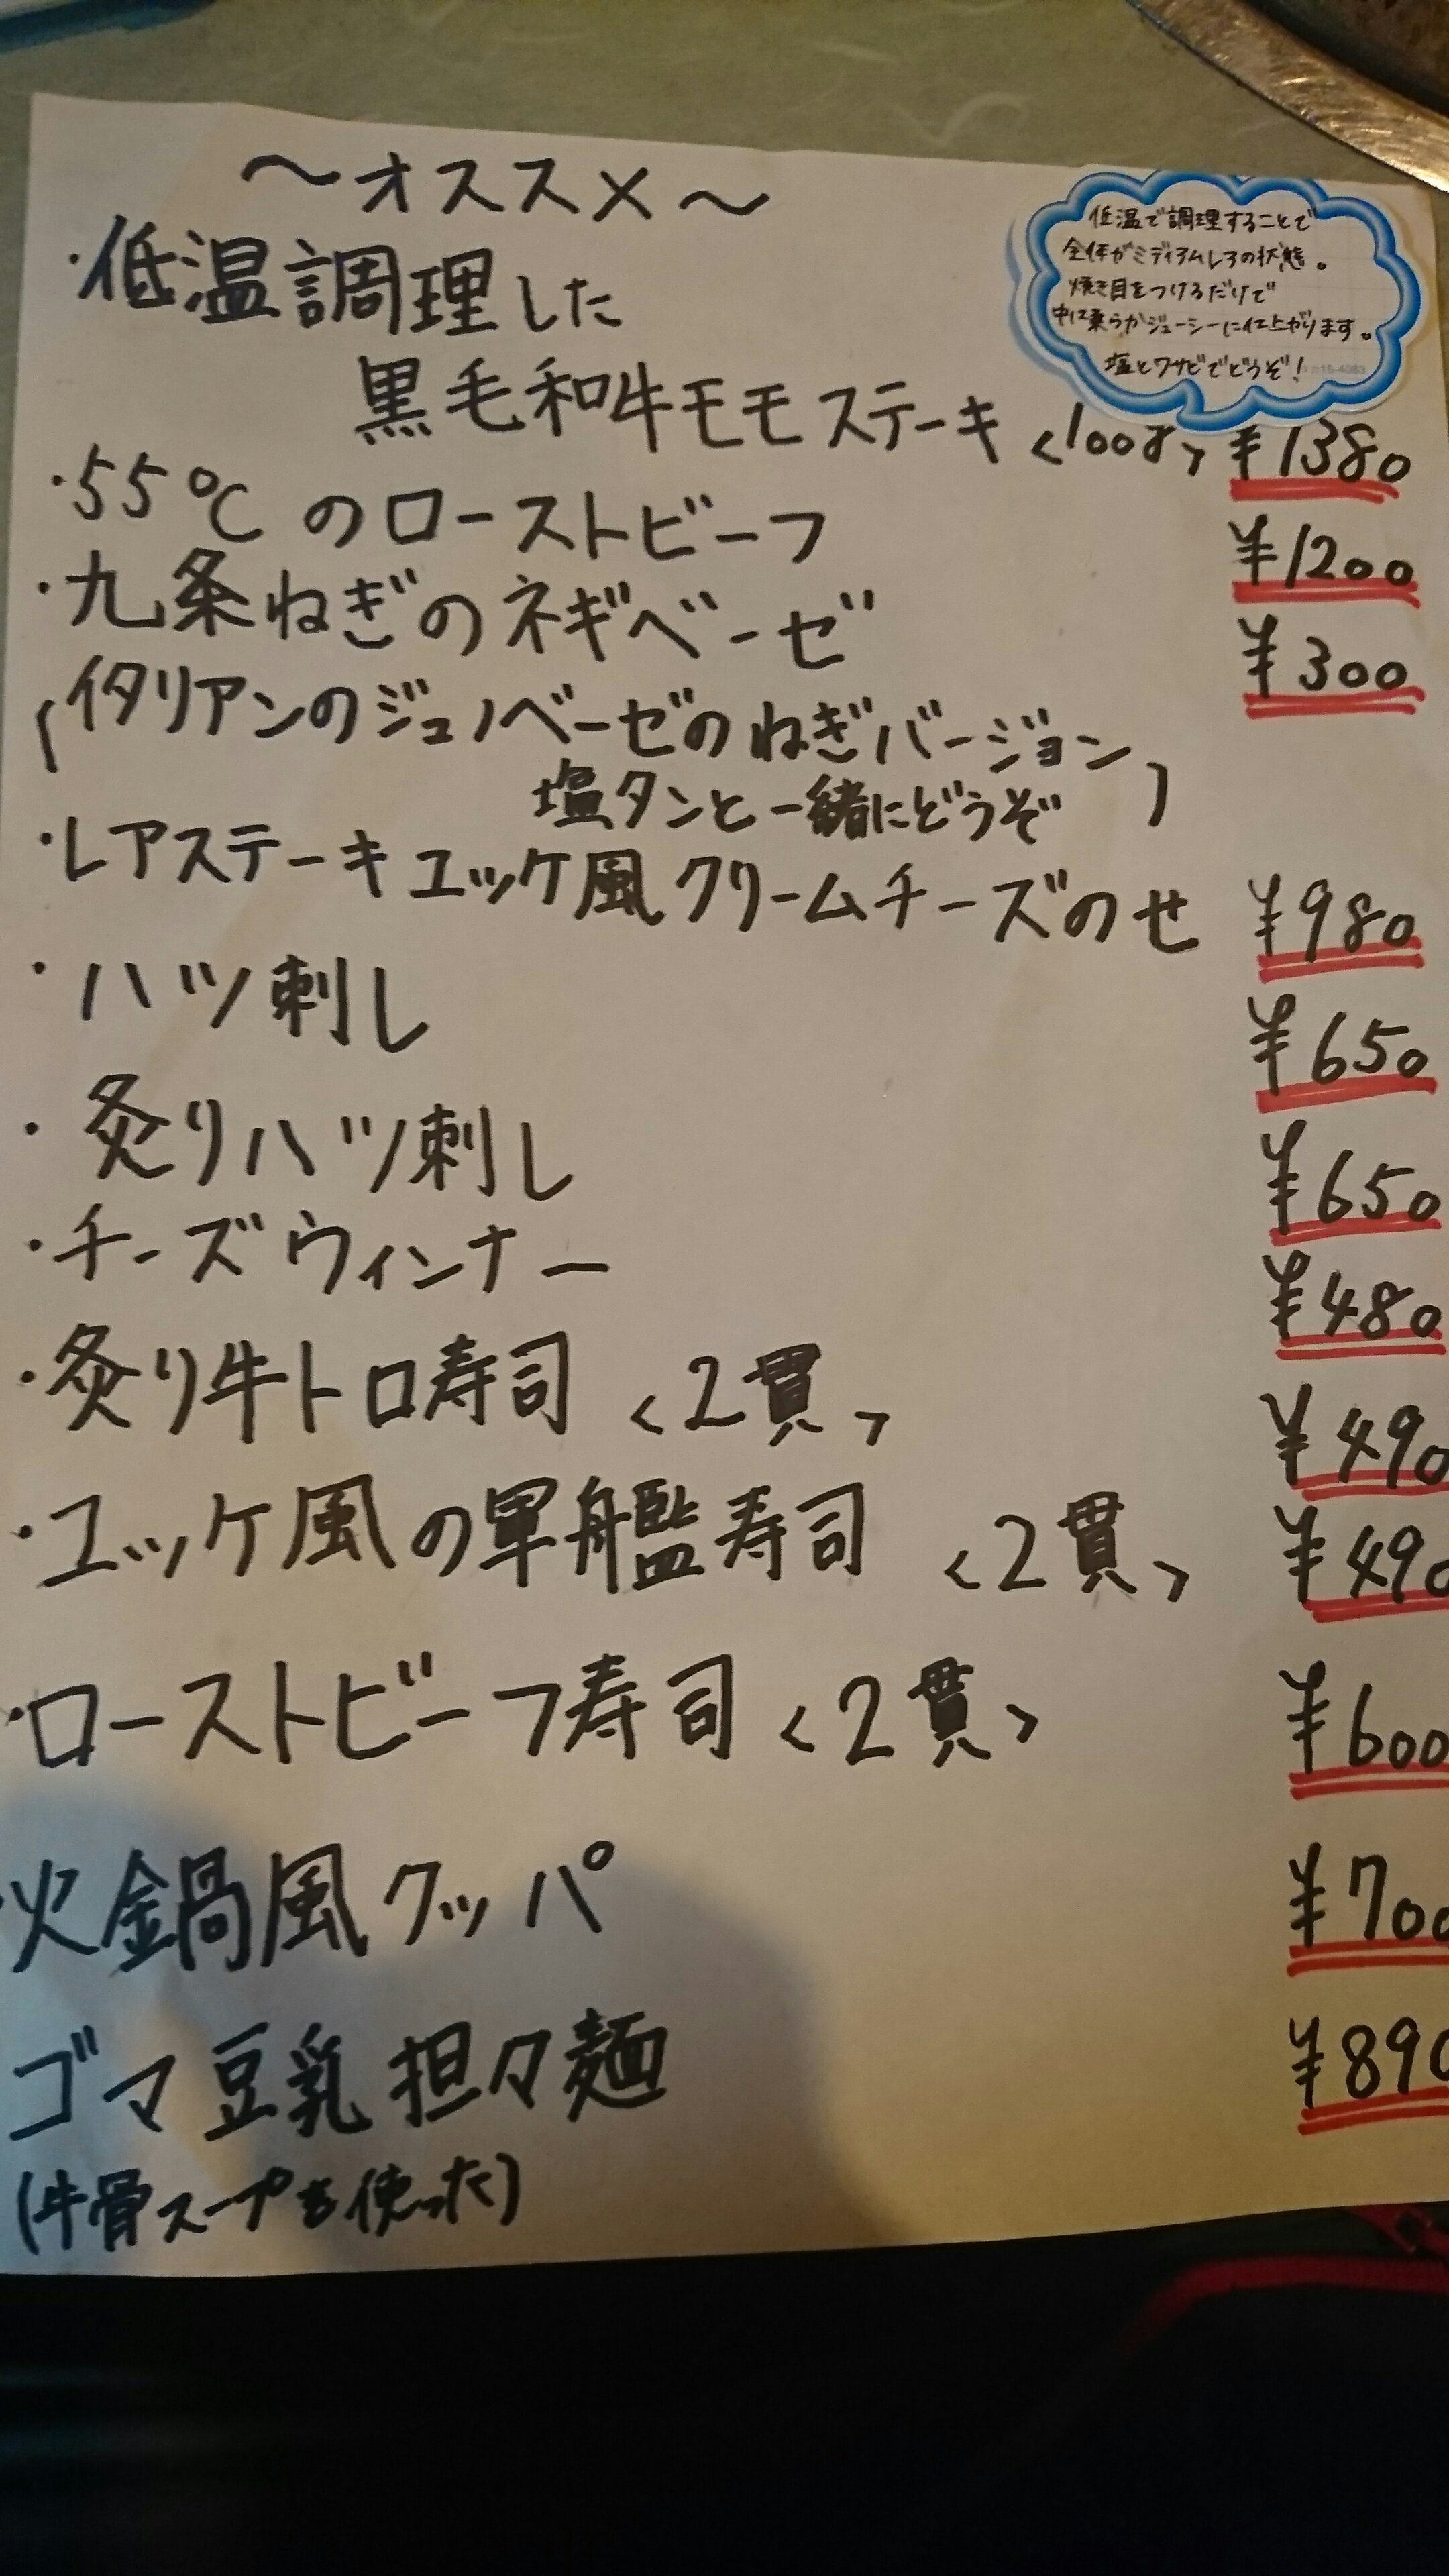 ～オススメ～
低温で調理することで
全体がミディアムレアの状態。
焼き目をつけるだけで
中は柔らかジューシーに仕上がります。
塩とワサビでどうぞ!
・低温調理した
黒毛和牛モモステーキ <100g> ¥1380
・55℃のローストビーフ ¥1200
・九条ねぎのネギベーゼ ¥300
(イタリアンのジェノベーゼのねぎバージョン
塩タンと一緒にどうぞ)
・レアステーキユッケ風クリームチーズのせ ¥980
・ハツ刺し ¥650
・炙りハツ刺し ¥650
・チーズウィンナー ¥480
・炙り牛トロ寿司 <2貫> ¥490
・ユッケ風の軍艦寿司 <2貫> ¥490
・ローストビーフ寿司 <2貫> ¥600
・火鍋風クッパ ¥700
ゴマ豆乳担々麺 ¥890
(牛骨スープを使った)